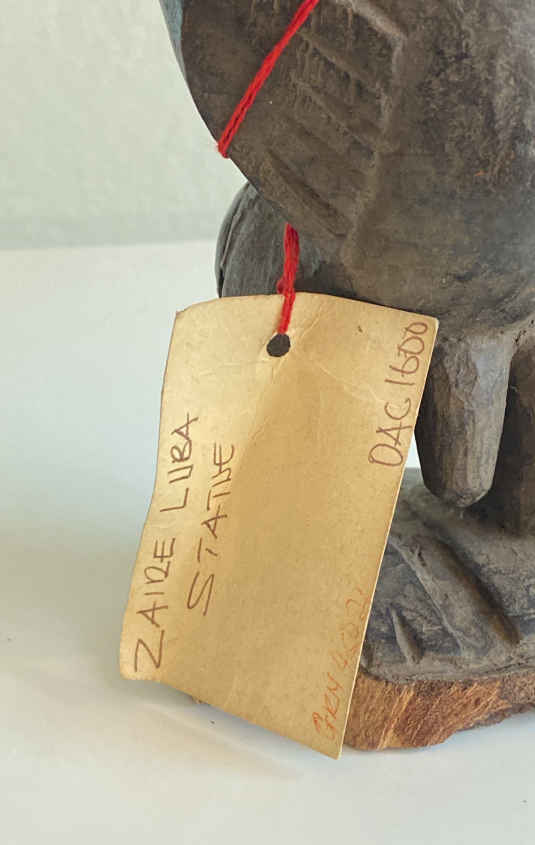 ZAIRE LUBA
STATUE
OAG 1600